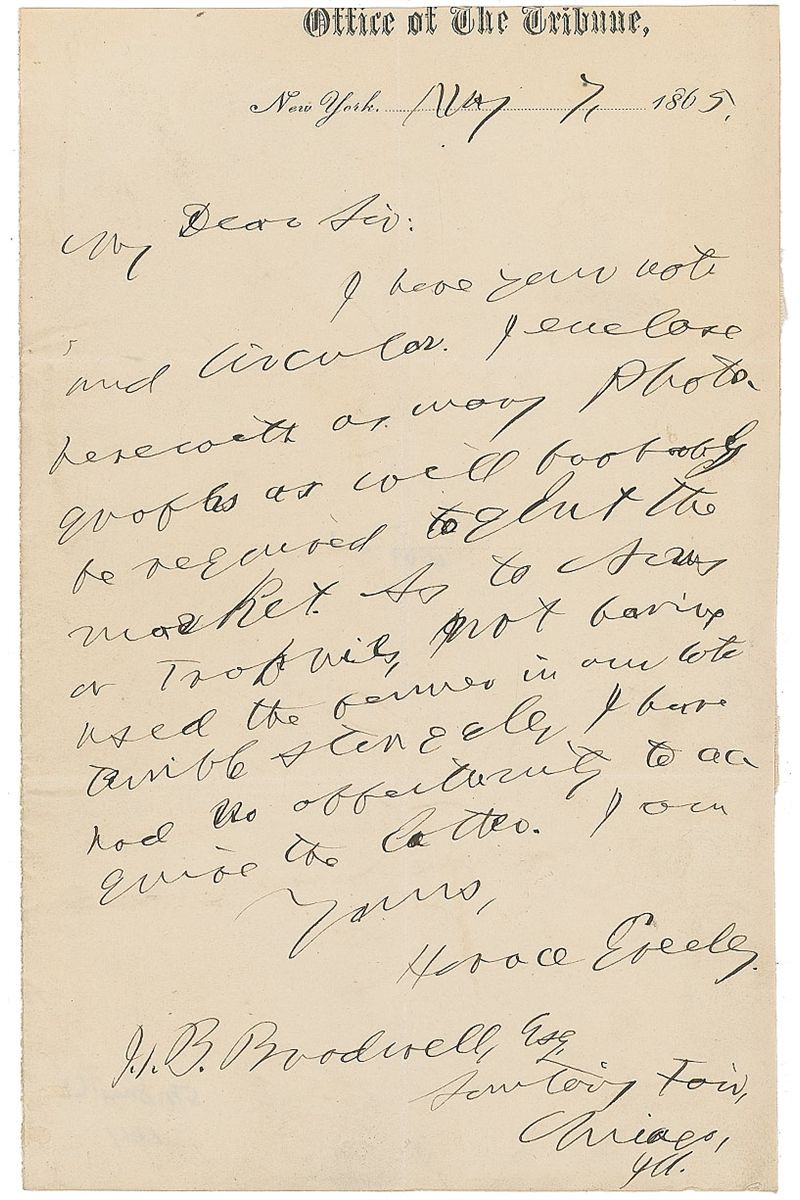 Office of The Tribune,
New York. May 7, 1865.
My Dear Sir:
I have your note
and Circular. I enclose
herewith as many Photo-
graphs as will probably
be required to glut the
market. As to Arms
or Trophies, not having
used the former in our late
terrible struggle, I have
had no opportunity to ac
quire the latter. I am
Yours,
Horace Greeley.
J. B. Bradwell, Esq,
Sanitary Fair,
Chicago,
Ill.